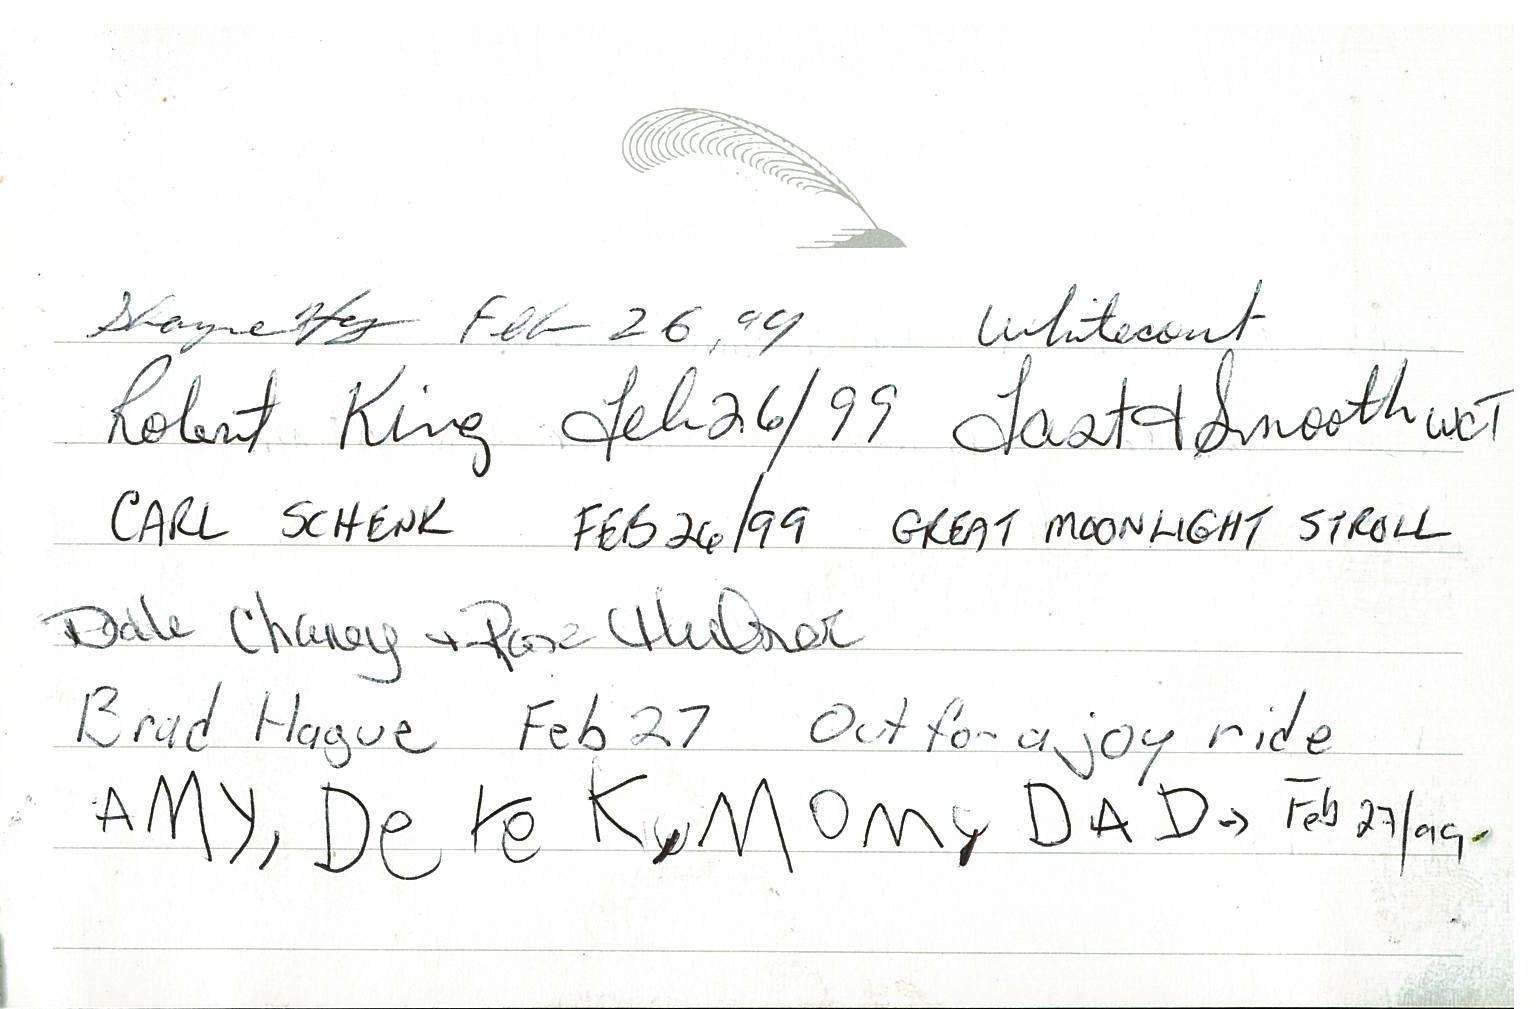 Shayne Feb 26, 99 Whitecourt
Robert King Feb 26/99 Fast & Smooth WCT
CARL SCHENK FEB 26/99 GREAT MOONLIGHT STROLL
Dale Chaney + Rose
Brad Hague Feb 27 Out for a joy ride
AMY, DereK, MOM, DAD → Feb 27/99.